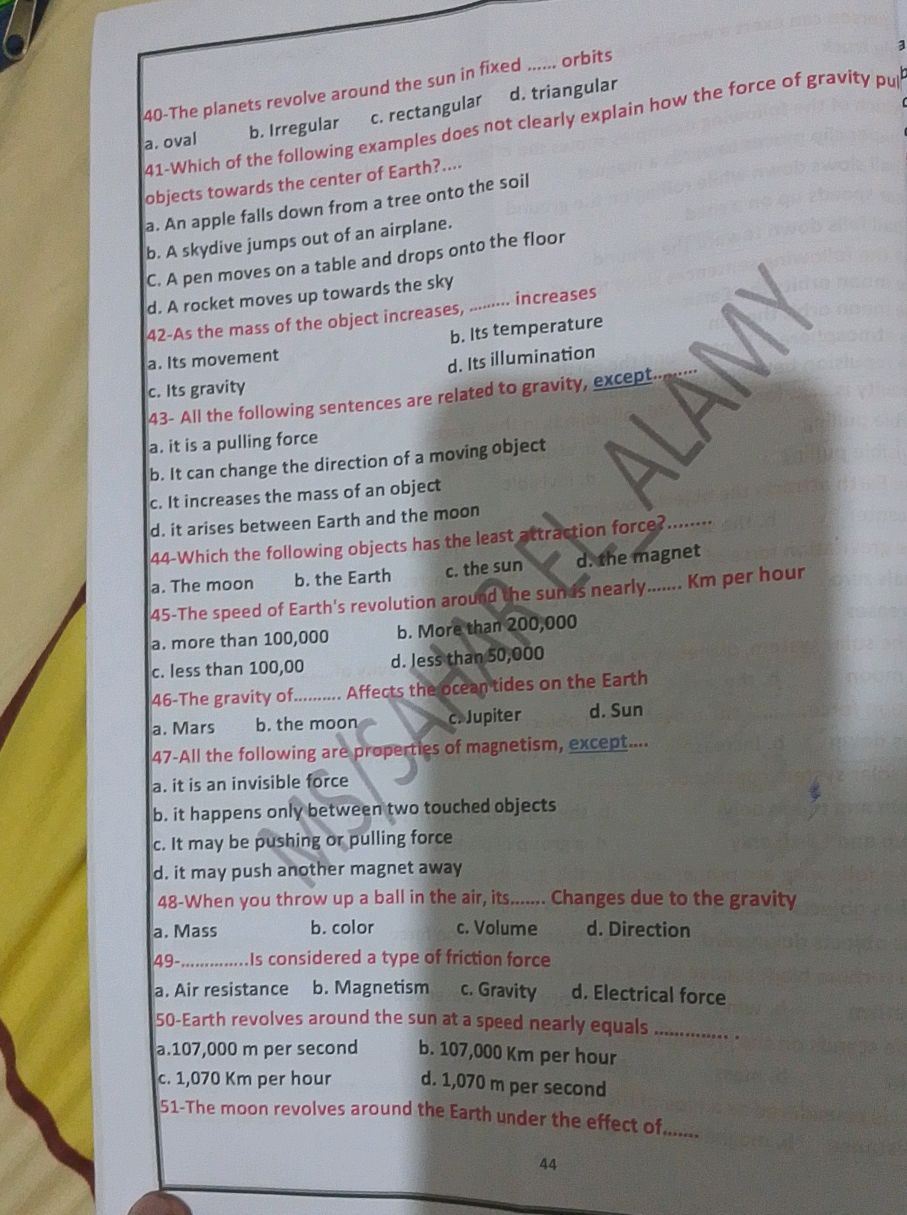 40-The planets revolve around the sun in fixed ...... orbits
a. oval b. Irregular c. rectangular d. triangular
41-Which of the following examples does not clearly explain how the force of gravity pul
objects towards the center of Earth?....
a. An apple falls down from a tree onto the soil
b. A skydive jumps out of an airplane.
C. A pen moves on a table and drops onto the floor
d. A rocket moves up towards the sky
42-As the mass of the object increases, ......... increases
a. Its movement b. Its temperature
c. Its gravity d. Its illumination
43- All the following sentences are related to gravity, except.........
a. it is a pulling force
b. It can change the direction of a moving object
c. It increases the mass of an object
d. it arises between Earth and the moon
44-Which the following objects has the least attraction force?........
a. The moon b. the Earth c. the sun d. the magnet
45-The speed of Earth's revolution around the sun is nearly....... Km per hour
a. more than 100,000 b. More than 200,000
c. less than 100,00 d. less than 50,000
46-The gravity of.......... Affects the ocean tides on the Earth
a. Mars b. the moon c. Jupiter d. Sun
47-All the following are properties of magnetism, except....
a. it is an invisible force
b. it happens only between two touched objects
c. It may be pushing or pulling force
d. it may push another magnet away
48-When you throw up a ball in the air, its....... Changes due to the gravity
a. Mass b. color c. Volume d. Direction
49-..............Is considered a type of friction force
a. Air resistance b. Magnetism c. Gravity d. Electrical force
50-Earth revolves around the sun at a speed nearly equals .............. .
a.107,000 m per second b. 107,000 Km per hour
c. 1,070 Km per hour d. 1,070 m per second
51-The moon revolves around the Earth under the effect of.......
44
MS/SAHAR EL_ALAMY